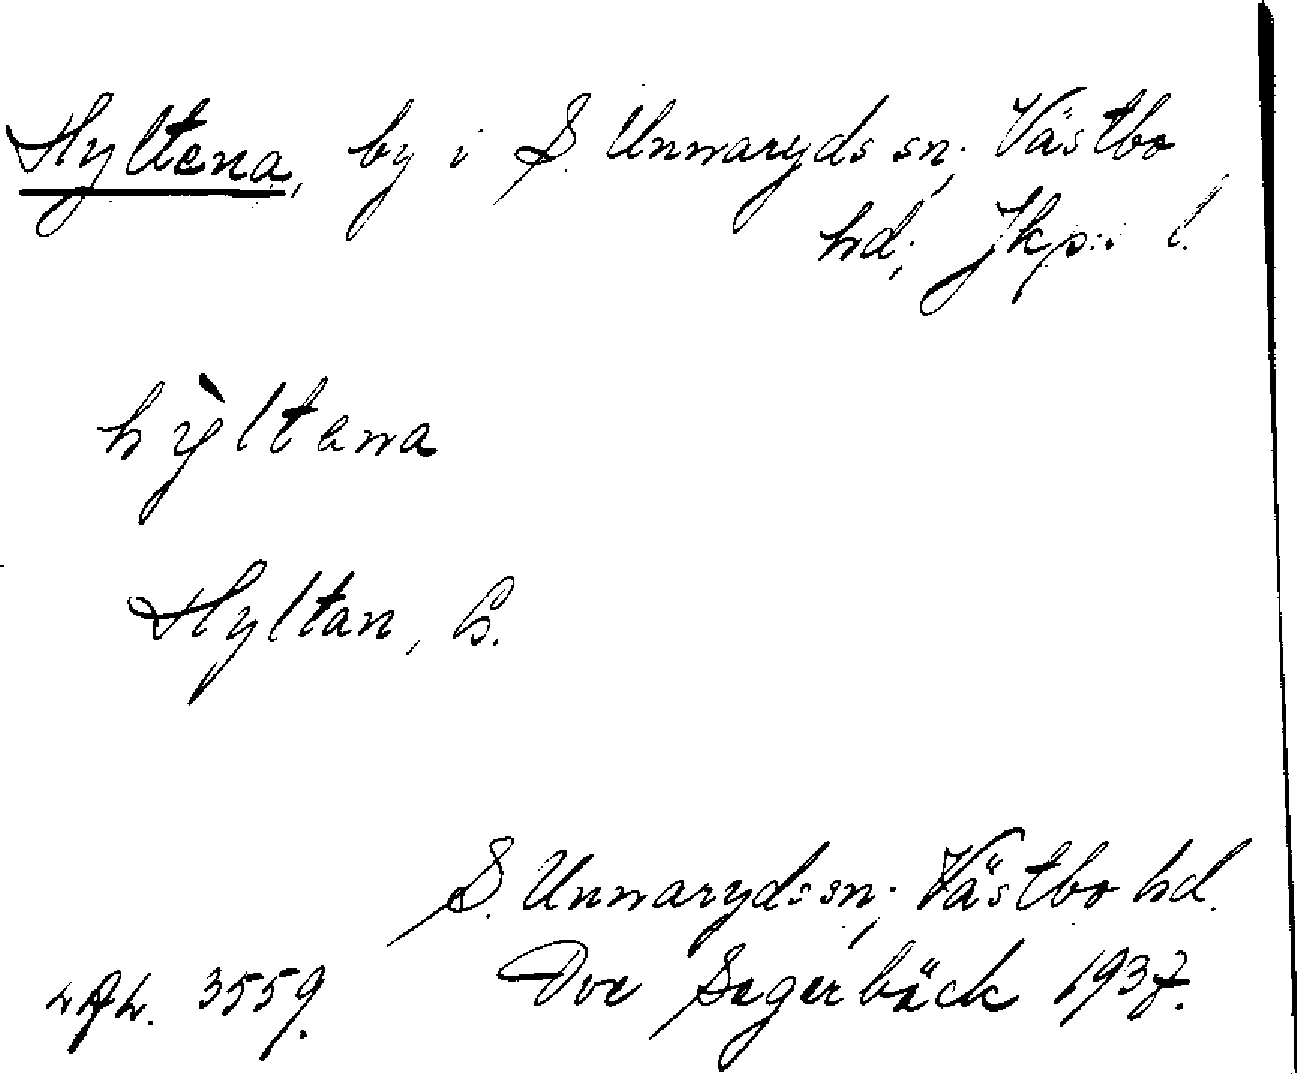 Hyltena, by i S. Unnaryds sn; Västbo
hd; Jkp:s l.
hỳltena
Hyltan, G.
S. Unnaryds sn; Västbo hd.
Ove Sagerbäck 1937.
3559.